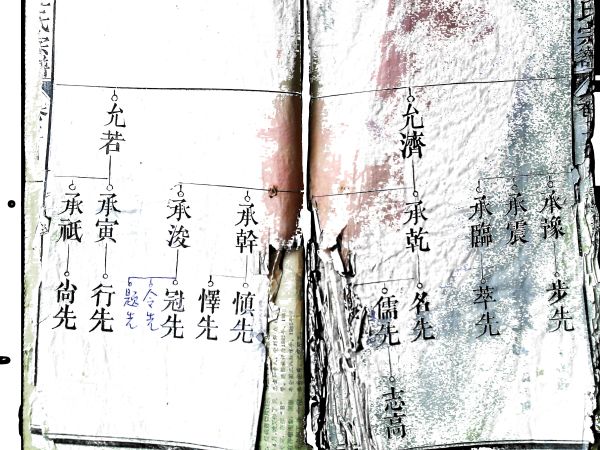 氏宗譜
允濟
承豫
承震
承臨
承乾
步先
萃先
名先
儒先
志高
氏宗譜
允若
承幹
承浚
承寅
承祇
慎先
懌先
冠先
令先
題先
行先
尙先